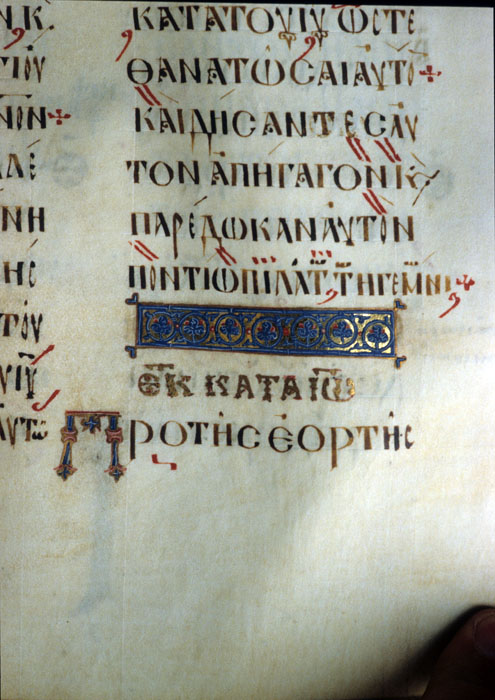 Ν Κ
ΓΙΟΥ
ΝΟΝ
ΛΕ
ΝΗ
ΗϹ
ΤΟΥ
ΥΙΥ
ΑΥΤΩ
ΚΑΤΑΤΟΥΙΥ ΩϹΤΕ
ΘΑΝΑΤΩϹΑΙΑΥΤΟ
ΚΑΙΔΗϹΑΝΤΕϹΑΥ
ΤΟΝ ΑΠΗΓΑΓΟΝ Κ
ΠΑΡΕΔΩΚΑΝΑΥΤΟΝ
ΠΟΝΤΙΩΠΙΛΑΤ ΤΗΓΕΜΝΙ
ΕΚ ΚΑΤΑ ΙΩ
ΠΡΟΤΗϹΕΟΡΤΗϹ